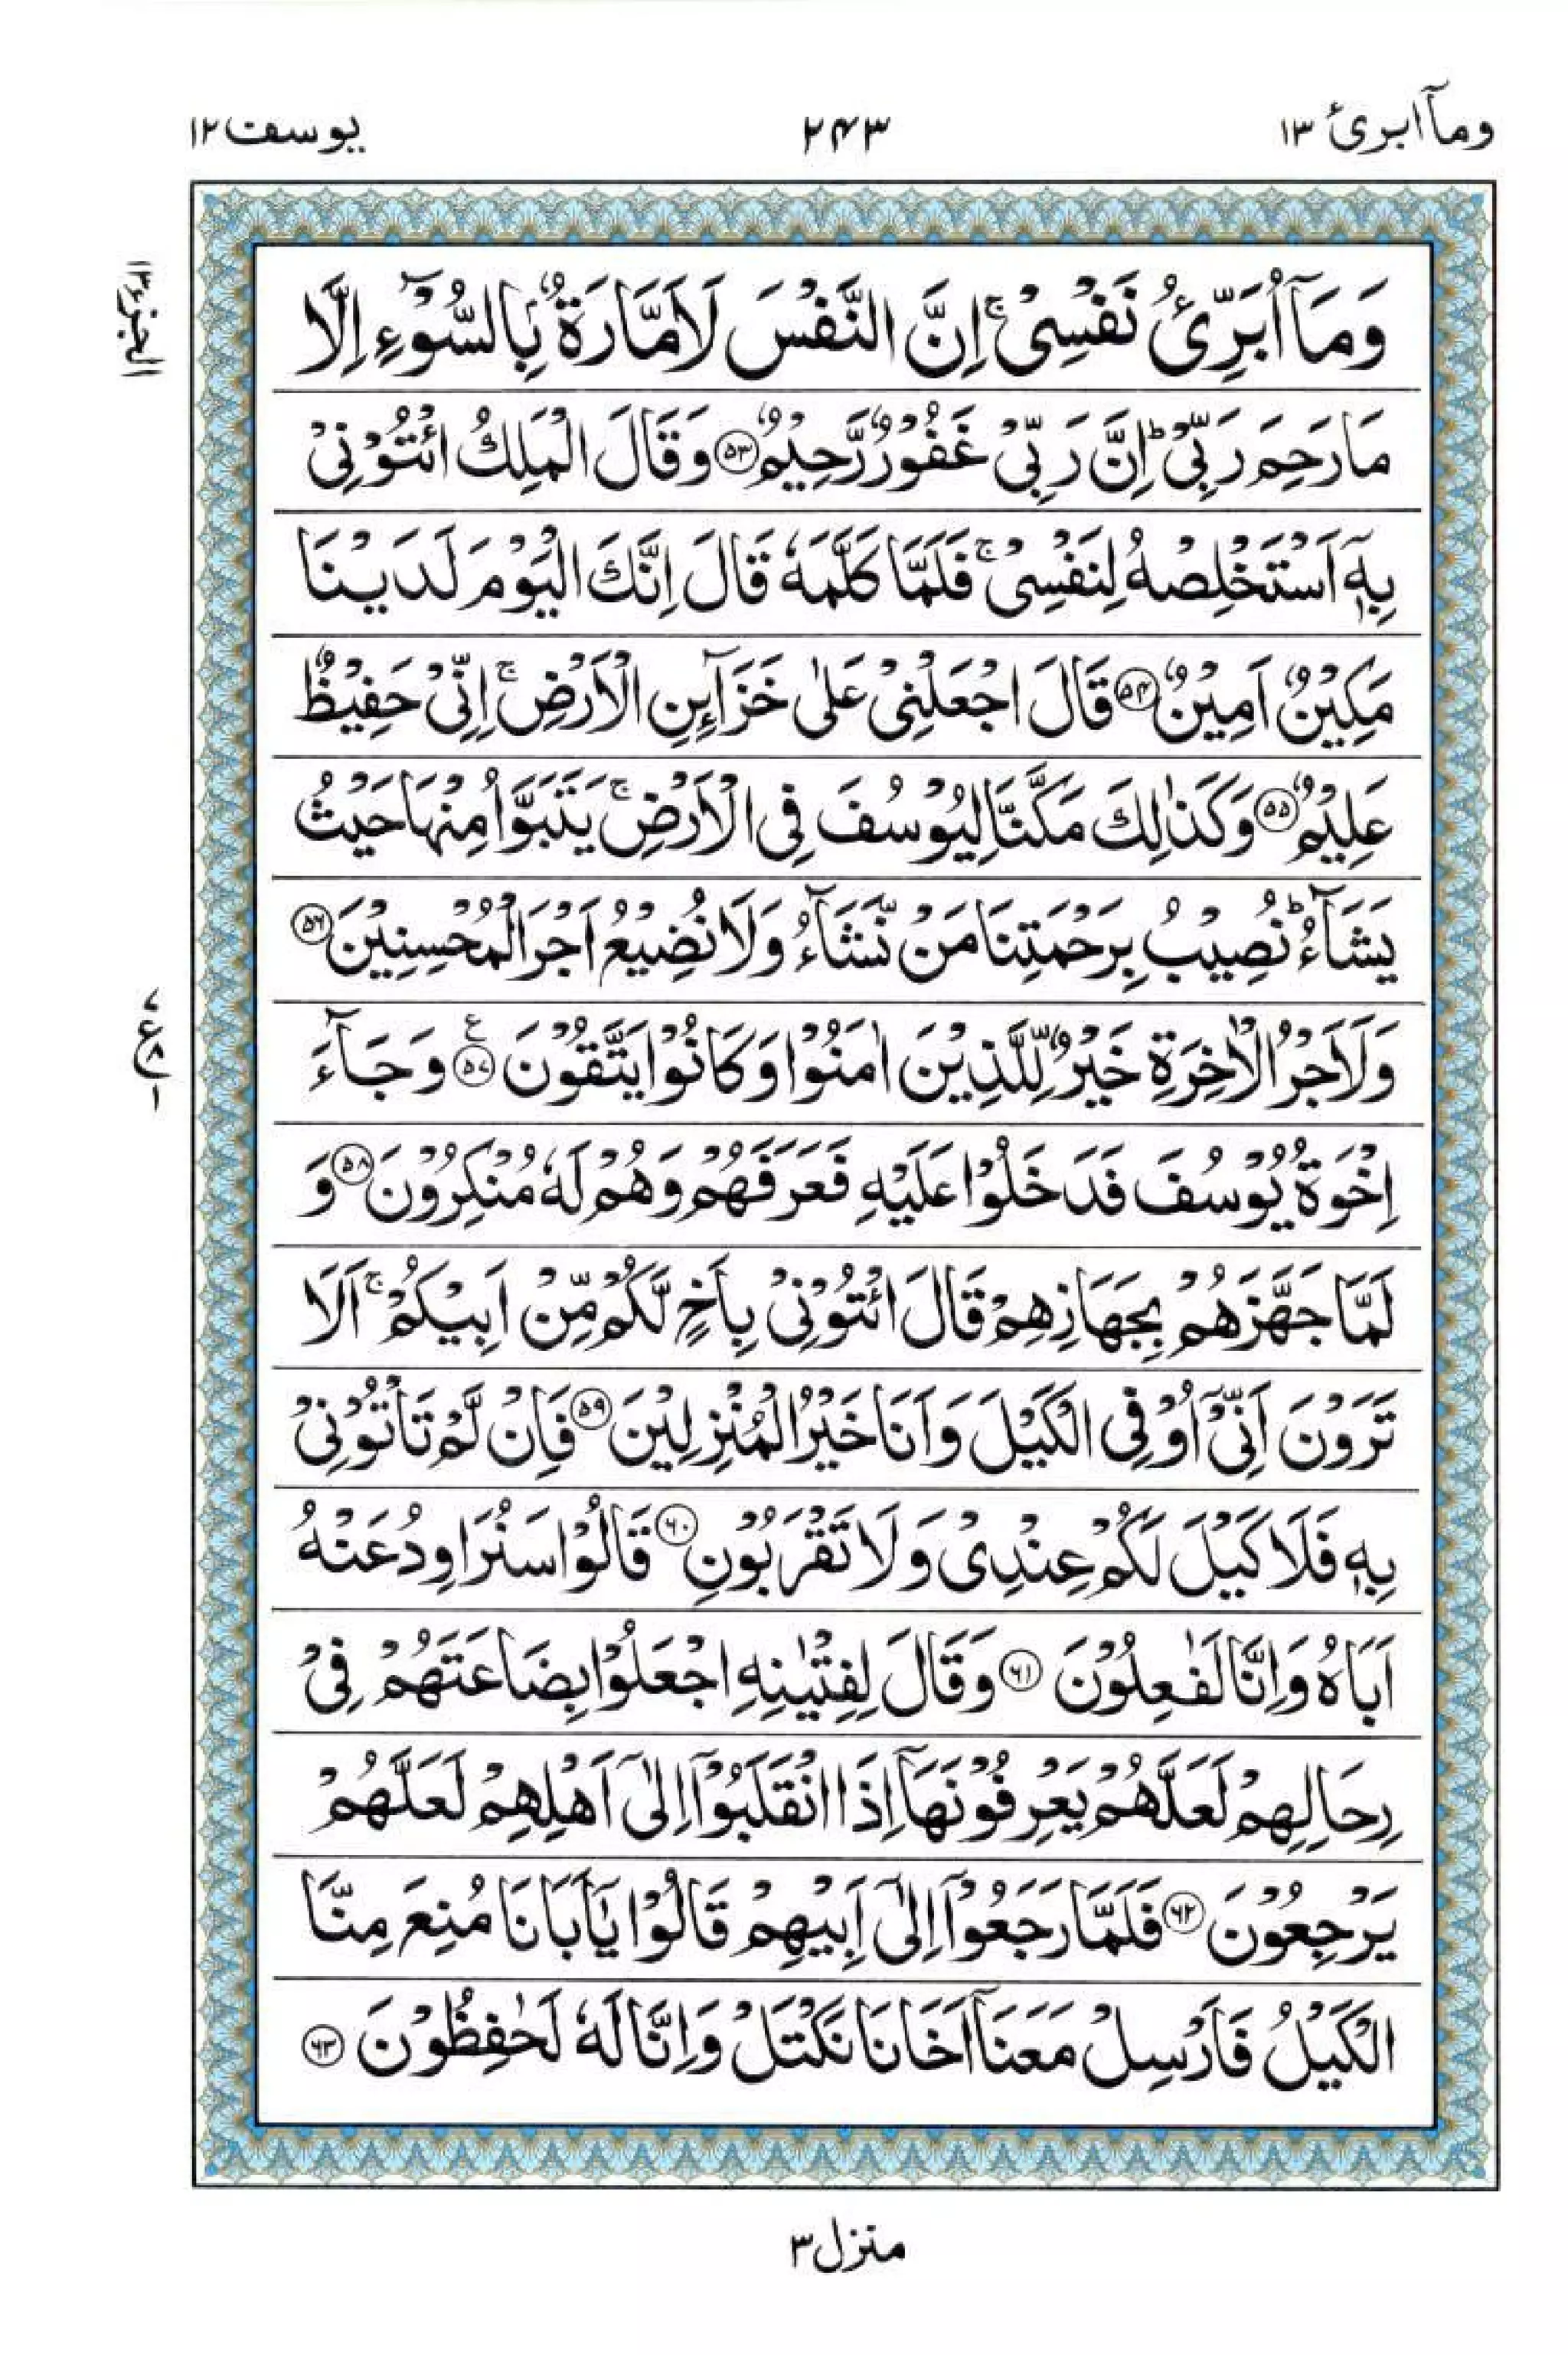 وماۤابرئ ۱۳
۲۴۳
یوسف ۱۲
وَمَاۤ اُبَرِّئُ نَفْسِیْ ۚ اِنَّ النَّفْسَ لَاَمَّارَةٌۢ بِالسُّوْٓءِ اِلَّا
مَا رَحِمَ رَبِّیْ ؕ اِنَّ رَبِّیْ غَفُوْرٌ رَّحِیْمٌ ﴿۵۳﴾ وَقَالَ الْمَلِكُ ائْتُوْنِیْ
بِهٖۤ اَسْتَخْلِصْهُ لِنَفْسِیْ ۚ فَلَمَّا كَلَّمَهٗ قَالَ اِنَّكَ الْیَوْمَ لَدَیْنَا
مَكِیْنٌ اَمِیْنٌ ﴿۵۴﴾ قَالَ اجْعَلْنِیْ عَلٰی خَزَآىِٕنِ الْاَرْضِ ۚ اِنِّیْ حَفِیْظٌ
عَلِیْمٌ ﴿۵۵﴾ وَكَذٰلِكَ مَكَّنَّا لِیُوْسُفَ فِی الْاَرْضِ ۚ یَتَبَوَّاُ مِنْهَا حَیْثُ
یَشَآءُ ؕ نُصِیْبُ بِرَحْمَتِنَا مَنْ نَّشَآءُ وَلَا نُضِیْعُ اَجْرَ الْمُحْسِنِیْنَ ﴿۵۶﴾
وَلَاَجْرُ الْاٰخِرَةِ خَیْرٌ لِّلَّذِیْنَ اٰمَنُوْا وَكَانُوْا یَتَّقُوْنَ ﴿۵۷﴾ ع وَجَآءَ
اِخْوَةُ یُوْسُفَ فَدَخَلُوْا عَلَیْهِ فَعَرَفَهُمْ وَهُمْ لَهٗ مُنْكِرُوْنَ ﴿۵۸﴾ وَ
لَمَّا جَهَّزَهُمْ بِجَهَازِهِمْ قَالَ ائْتُوْنِیْ بِاَخٍ لَّكُمْ مِّنْ اَبِیْكُمْ ۚ اَلَا
تَرَوْنَ اَنِّیْۤ اُوْفِی الْكَیْلَ وَاَنَا خَیْرُ الْمُنْزِلِیْنَ ﴿۵۹﴾ فَاِنْ لَّمْ تَاْتُوْنِیْ
بِهٖ فَلَا كَیْلَ لَكُمْ عِنْدِیْ وَلَا تَقْرَبُوْنِ ﴿۶۰﴾ قَالُوْا سَنُرَاوِدُ عَنْهُ
اَبَاهُ وَاِنَّا لَفٰعِلُوْنَ ﴿۶۱﴾ وَقَالَ لِفِتْیٰنِهِ اجْعَلُوْا بِضَاعَتَهُمْ فِیْ
رِحَالِهِمْ لَعَلَّهُمْ یَعْرِفُوْنَهَاۤ اِذَا انْقَلَبُوْۤا اِلٰۤی اَهْلِهِمْ لَعَلَّهُمْ
یَرْجِعُوْنَ ﴿۶۲﴾ فَلَمَّا رَجَعُوْۤا اِلٰۤی اَبِیْهِمْ قَالُوْا یٰۤاَبَانَا مُنِعَ مِنَّا
الْكَیْلُ فَاَرْسِلْ مَعَنَاۤ اَخَانَا نَكْتَلْ وَاِنَّا لَهٗ لَحٰفِظُوْنَ ﴿۶۳﴾
الجزء ۱۳
۷
ع ۸
۱
منزل ۳